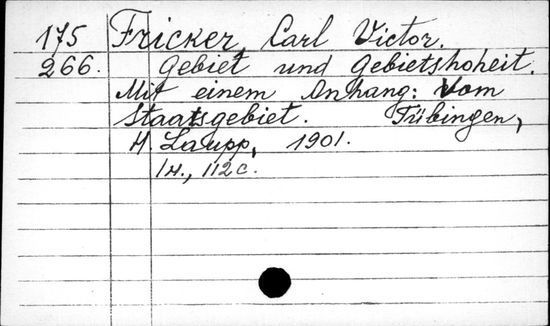 175 Fricker, Carl Victor.
266. Gebiet und Gebietshoheit.
Mit einem Anhang: Vom
Staatsgebiet. Tübingen,
H. Laupp, 1901.
1н., 112с.